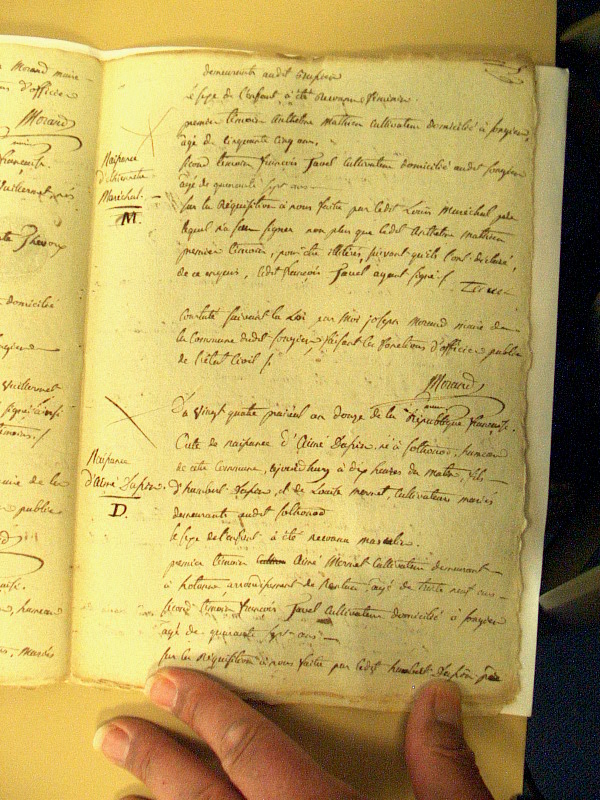 Morand maire
d'officier
Morand
maire
française.
Vuillermet
domicilié
Vuillermet
maire de la
publics
hameau
Mariés
demeurants audit
le sexe de l'enfant, a été Reconnu féminin.
premier témoin Anthelme Mathieu Cultivateur domicilié à Songieu,
âgé de cinquante cinq ans,
second témoin françois Javel Cultivateur domicilié audit Songieu
âgé de quarante sept ans
Sur la Réquisition à nous faite par ledit Louis Maréchal père
lequel n'a signer non plus que ledit Anthelme Mathieu
premier témoin, pour être illiterés, suivant qu'ils l'ont déclaré,
de ce enquis, ledit françois Javel ayant signé ./.
Constaté suivant la Loi, par Moi joseph Morand maire de
la Commune dudit Songieu, faisant les fonctions d'officier public
de l'état Civil ./.
Morand
maire
Naissance
Maréchal.
M.
Du vingt quatre prairial an douze de la République française.
Acte de naissance d'Aimé Dupin, né à Sothonod, hameau
de cette Commune, aujourd'huy à dix heures du matin, fils
d'humbert Dupin, et de Louise Mornet, Cultivateurs mariés
demeurants audit Sothonod
le sexe de l'enfant a été reconnu masculin.
premier témoin Aimé Mornet Cultivateur demeurant
à hotonne arrondissement de Nantua âgé de trente neuf ans
second témoin françois Javel Cultivateur domicilié à Songieu
âgé de quarante sept ans
Sur la Réquisition à nous faite par ledit humbert Dupin père
Naissance
d'Aimé Dupin.
D.